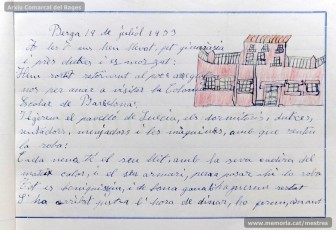 Arxiu Comarcal del Bages
Berga 19 de juliol 1933
A les 7 ens hem llevat, fet gimnàsia
i pres dutxes i esmorzat:
Hem sortit
nos per anar a visitar la Colonia
Escolar de Barcelona.
Vegerem el pavelló de Suïcia, els dormitoris, dutxes,
rentadors, menjadors i les màquines, amb que renten
la roba:
Cada nena té el seu llit, amb la seva cadira del
mateix color, i el seu armari, per a posar-hi la roba
Tot és boniquíssim, i de bona gana
S'ha arribat l'hora de dinar, ho férem, durant
www.memoria.cat/mestres